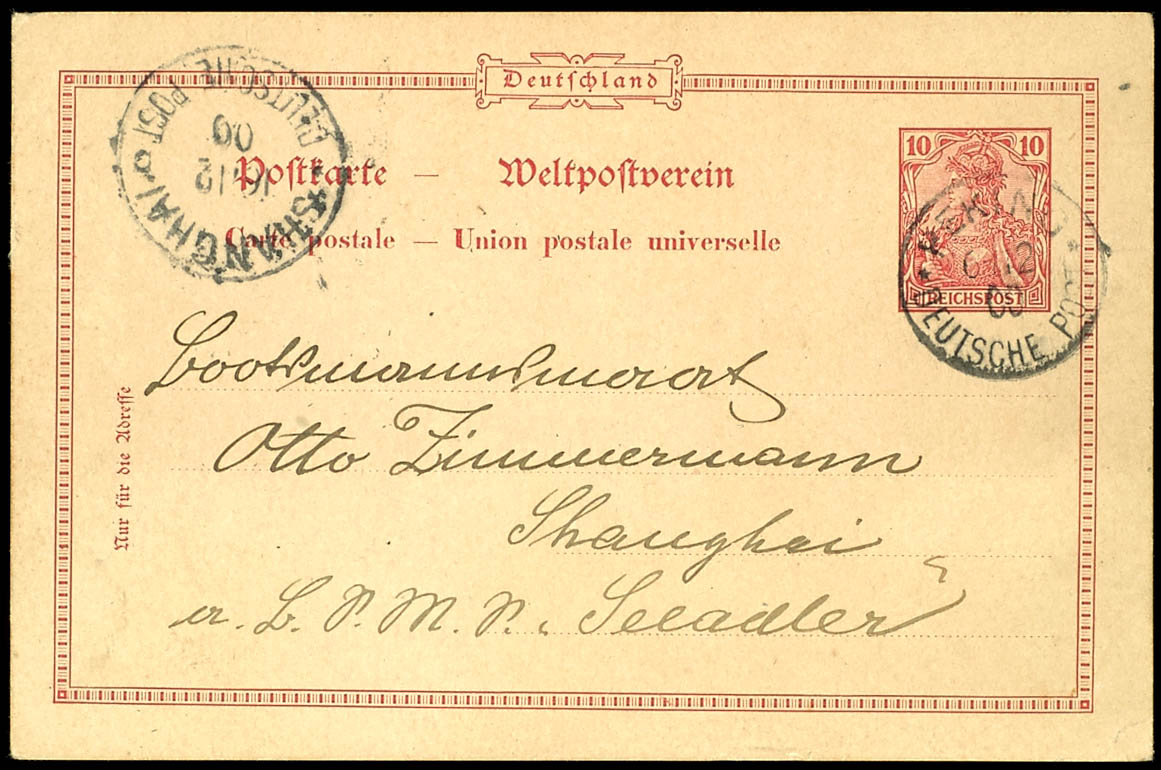 Deutschland
Postkarte — Weltpostverein
Carte postale — Union postale universelle
10 10
REICHSPOST
PEKING
12
00
* DEUTSCHE POST *
*SHANGHAI
DEUTSCHE POST
12
00
Nur für die Adresse
Bootsmannsmaat
Otto Zimmermann
Shanghai
a. S. M. S. "Seeadler"